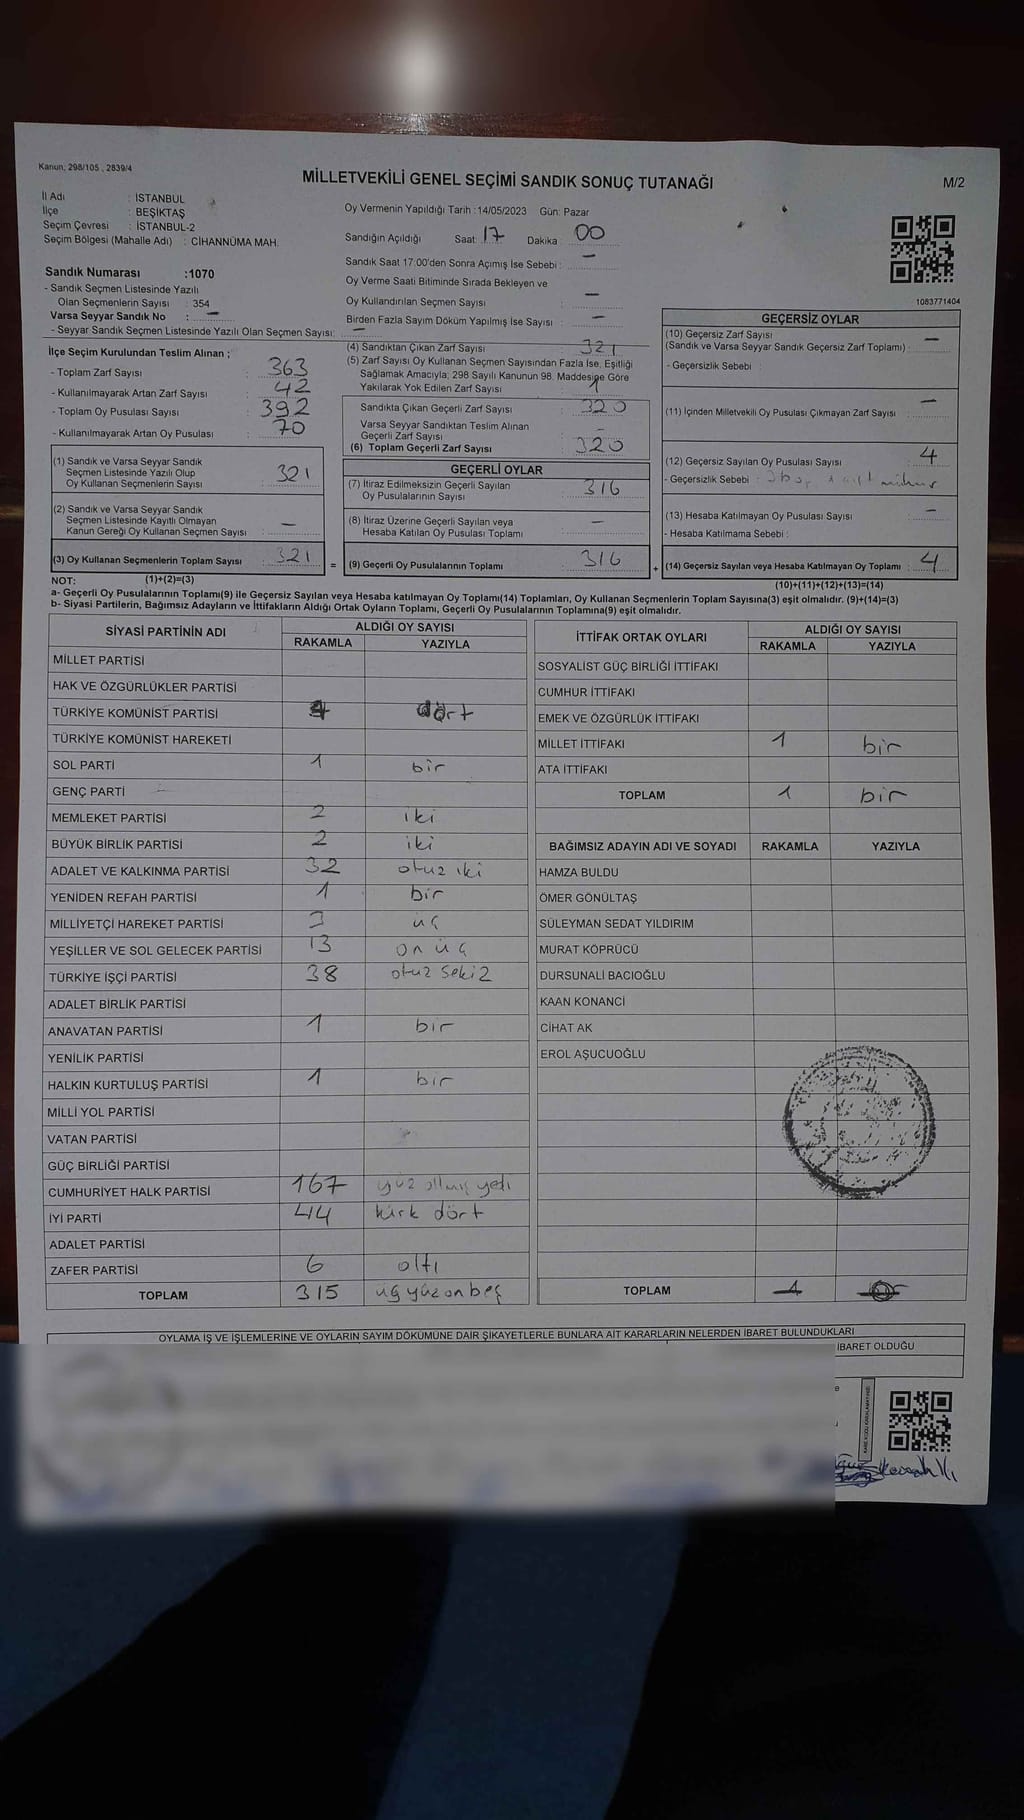 Kanun; 298/105 , 2839/4
MİLLETVEKİLİ GENEL SEÇİMİ SANDIK SONUÇ TUTANAĞI
M/2
İl Adı : İSTANBUL
İlçe : BEŞİKTAŞ
Seçim Çevresi : İSTANBUL-2
Seçim Bölgesi (Mahalle Adı) : CİHANNÜMA MAH.
Sandık Numarası :1070
- Sandık Seçmen Listesinde Yazılı
Olan Seçmenlerin Sayısı : 354
Varsa Seyyar Sandık No : —
- Seyyar Sandık Seçmen Listesinde Yazılı Olan Seçmen Sayısı: —
Oy Vermenin Yapıldığı Tarih :14/05/2023 Gün: Pazar
Sandığın Açıldığı Saat: 17 Dakika : 00
Sandık Saat 17:00'den Sonra Açımış İse Sebebi : —
Oy Verme Saati Bitiminde Sırada Bekleyen ve
Oy Kullandırılan Seçmen Sayısı : —
Birden Fazla Sayım Döküm Yapılmış İse Sayısı : —
1083771404
İlçe Seçim Kurulundan Teslim Alınan ;
- Toplam Zarf Sayısı : 363
- Kullanılmayarak Artan Zarf Sayısı : 42
- Toplam Oy Pusulası Sayısı : 392
- Kullanılmayarak Artan Oy Pusulası : 70
(1) Sandık ve Varsa Seyyar Sandık
Seçmen Listesinde Yazılı Olup
Oy Kullanan Seçmenlerin Sayısı : 321
(2) Sandık ve Varsa Seyyar Sandık
Seçmen Listesinde Kayıtlı Olmayan
Kanun Gereği Oy Kullanan Seçmen Sayısı : —
(3) Oy Kullanan Seçmenlerin Toplam Sayısı : 321
=
(4) Sandıktan Çıkan Zarf Sayısı : 321
(5) Zarf Sayısı Oy Kullanan Seçmen Sayısından Fazla İse, Eşitliği
Sağlamak Amacıyla; 298 Sayılı Kanunun 98. Maddesine Göre
Yakılarak Yok Edilen Zarf Sayısı : 1
Sandıkta Çıkan Geçerli Zarf Sayısı : 320
Varsa Seyyar Sandıktan Teslim Alınan
Geçerli Zarf Sayısı : —
(6) Toplam Geçerli Zarf Sayısı : 320
GEÇERLİ OYLAR
(7) İtiraz Edilmeksizin Geçerli Sayılan
Oy Pusulalarının Sayısı : 316
(8) İtiraz Üzerine Geçerli Sayılan veya
Hesaba Katılan Oy Pusulası Toplamı : —
(9) Geçerli Oy Pusulalarının Toplamı : 316
+
GEÇERSİZ OYLAR
(10) Geçersiz Zarf Sayısı
(Sandık ve Varsa Seyyar Sandık Geçersiz Zarf Toplamı) : —
- Geçersizlik Sebebi :
(11) İçinden Milletvekili Oy Pusulası Çıkmayan Zarf Sayısı : —
(12) Geçersiz Sayılan Oy Pusulası Sayısı : 4
- Geçersizlik Sebebi : 3 boş, 1 çift mühür
(13) Hesaba Katılmayan Oy Pusulası Sayısı : —
- Hesaba Katılmama Sebebi :
(14) Geçersiz Sayılan veya Hesaba Katılmayan Oy Toplamı : 4
NOT: (1)+(2)=(3)
(10)+(11)+(12)+(13)=(14)
a- Geçerli Oy Pusulalarının Toplamı(9) ile Geçersiz Sayılan veya Hesaba katılmayan Oy Toplamı(14) Toplamları, Oy Kullanan Seçmenlerin Toplam Sayısına(3) eşit olmalıdır. (9)+(14)=(3)
b- Siyasi Partilerin, Bağımsız Adayların ve İttifakların Aldığı Ortak Oyların Toplamı, Geçerli Oy Pusulalarının Toplamına(9) eşit olmalıdır.
SİYASİ PARTİNİN ADI ALDIĞI OY SAYISI
RAKAMLA YAZIYLA
MİLLET PARTİSİ
HAK VE ÖZGÜRLÜKLER PARTİSİ
TÜRKİYE KOMÜNİST PARTİSİ 4 dört
TÜRKİYE KOMÜNİST HAREKETİ
SOL PARTİ 1 bir
GENÇ PARTİ
MEMLEKET PARTİSİ 2 iki
BÜYÜK BİRLİK PARTİSİ 2 iki
ADALET VE KALKINMA PARTİSİ 32 otuz iki
YENİDEN REFAH PARTİSİ 1 bir
MİLLİYETÇİ HAREKET PARTİSİ 3 üç
YEŞİLLER VE SOL GELECEK PARTİSİ 13 on üç
TÜRKİYE İŞÇİ PARTİSİ 38 otuz sekiz
ADALET BİRLİK PARTİSİ
ANAVATAN PARTİSİ 1 bir
YENİLİK PARTİSİ
HALKIN KURTULUŞ PARTİSİ 1 bir
MİLLİ YOL PARTİSİ
VATAN PARTİSİ
GÜÇ BİRLİĞİ PARTİSİ
CUMHURİYET HALK PARTİSİ 167 yüz altmış yedi
İYİ PARTİ 44 kırk dört
ADALET PARTİSİ
ZAFER PARTİSİ 6 altı
TOPLAM 315 üç yüz on beş
İTTİFAK ORTAK OYLARI ALDIĞI OY SAYISI
RAKAMLA YAZIYLA
SOSYALİST GÜÇ BİRLİĞİ İTTİFAKI
CUMHUR İTTİFAKI
EMEK VE ÖZGÜRLÜK İTTİFAKI
MİLLET İTTİFAKI 1 bir
ATA İTTİFAKI
TOPLAM 1 bir
BAĞIMSIZ ADAYIN ADI VE SOYADI RAKAMLA YAZIYLA
HAMZA BULDU
ÖMER GÖNÜLTAŞ
SÜLEYMAN SEDAT YILDIRIM
MURAT KÖPRÜCÜ
DURSUNALİ BACIOĞLU
KAAN KONANCİ
CİHAT AK
EROL AŞUCUOĞLU
TOPLAM 1
OYLAMA İŞ VE İŞLEMLERİNE VE OYLARIN SAYIM DÖKÜMÜNE DAİR ŞİKAYETLERLE BUNLARA AİT KARARLARIN NELERDEN İBARET BULUNDUKLARI
İBARET OLDUĞU